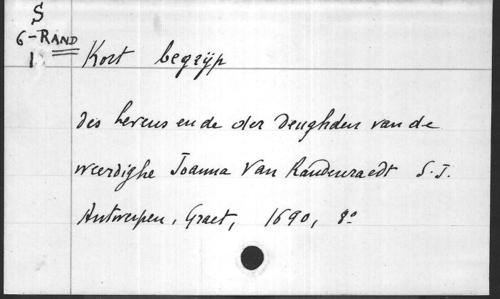 S
6-RAND
1
Kort begrijp
des levens ende der deughden van de
weerdighe Joanna Van Randenraedt S.J.
Antwerpen, Graet, 1690, 8º